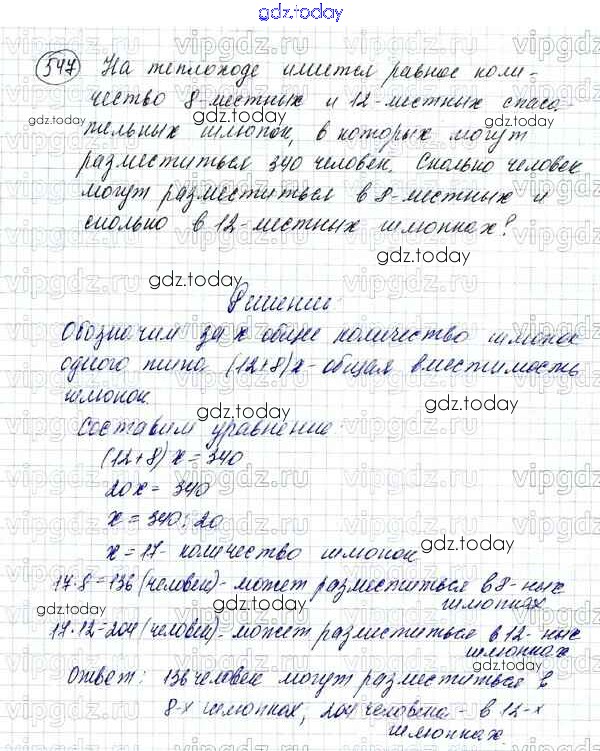 gdz.today
547 На теплоходе имеется равное коли-
чество 8-местных и 12-местных спаса-
gdz.today gdz.today
тельных шлюпок, в которых могут
разместиться 340 человек. Сколько человек
могут разместиться в 8-местных и
сколько в 12-местных шлюпках?
gdz.today
gdz.today
Решение
Обозначим за x общее количество шлюпок
одного типа (12+8)x - общая вместимость
шлюпок.
gdz.today
Составим уравнение:
(12+8)x=340
gdz.today
20x=340
x=340:20
gdz.today
x=17- количество шлюпок
17·8=136 (человек)- может разместиться в 8-ных
шлюпках
gdz.today gdz.today
17·12=204 (человек)- может разместиться в 12-ных
шлюпках
Ответ: 136 человек могут разместиться в
8-х шлюпках, 204 человека - в 12-х
шлюпках.
gdz.today
gdz.today
vipgdz.ru